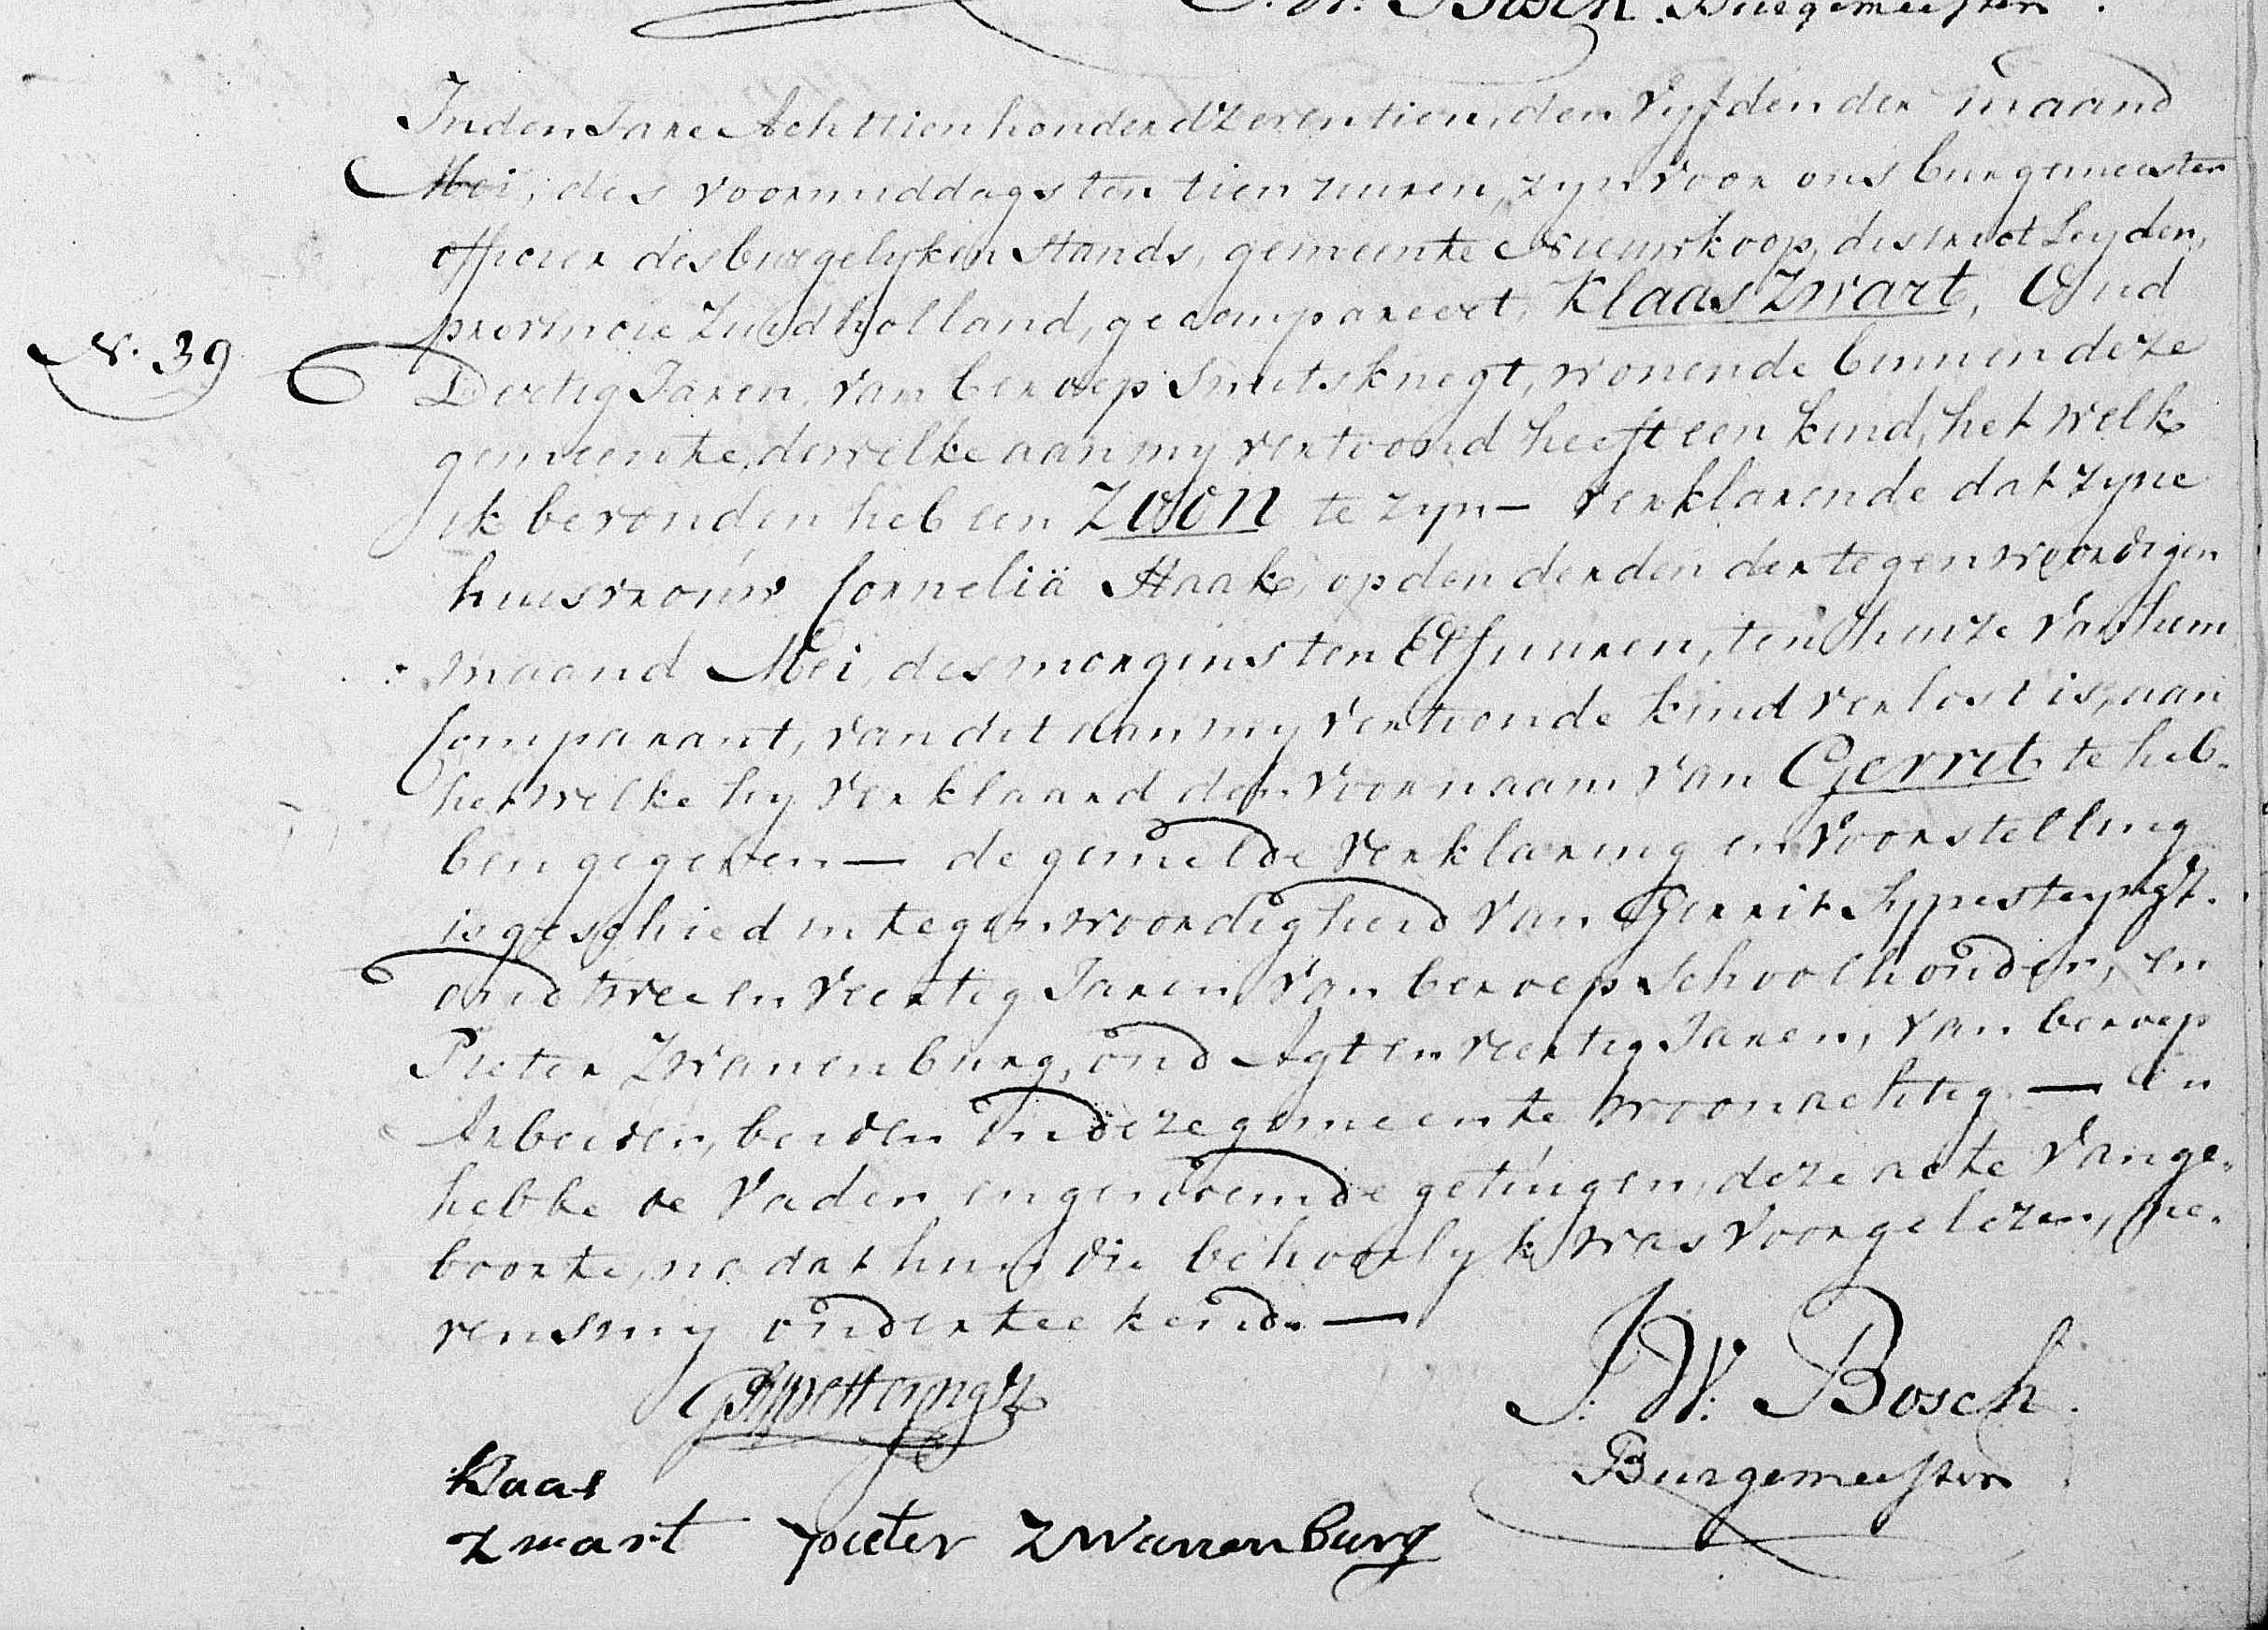 J. W. Bosch. Burgemeester.
In den Jare Achttien honderd Zeventien, den Vyfden der maand
Mei, des voormiddags ten tien uuren, zyn voor ons burgemeester
officier des burgelyken stands, gemeente Nieuwkoop, district Leyden,
provincie Zuidholland, gecompareert, Klaas Zwart, Oud
N. 39
Dertig Jaren, van beroep Smitsknegt, wonende binnen deze
gemeente, dewelke aan my vertoond heeft een kind, het welk
ik bevonden heb een Zoon te zyn — verklarende dat zyne
huisvrouw Corneliä Haak, op den derden der tegenwoordigen
maand Mei, des morgens ten Elf uuren, ten huize van hem
Comparant, van dit aan my vertoonde kind verlost is, aan
het welke hy verklaard den voornaam van Gerrit te heb-
ben gegeven — de gemelde verklaring en voorstelling
is geschied in tegenwoordigheid van Gerrit Sypesteyn gz.
oud twee en veertig Jaren, van beroep Schoolhouder, en
Pieter Zwanenburg, oud Agt en veertig Jaren, van beroep
Arbeider, beiden in deze gemeente woonachtig — En
hebbe de Vader en genoemde getuigen, deze acte van ge-
boorte, na dat hun die behoorlyk was voorgelezen, ne-
vens my onderteekend. —
GSypesteyn gz
J. W. Bosch.
Burgemeester
Klaas
Zwart pieter ZWanenburg